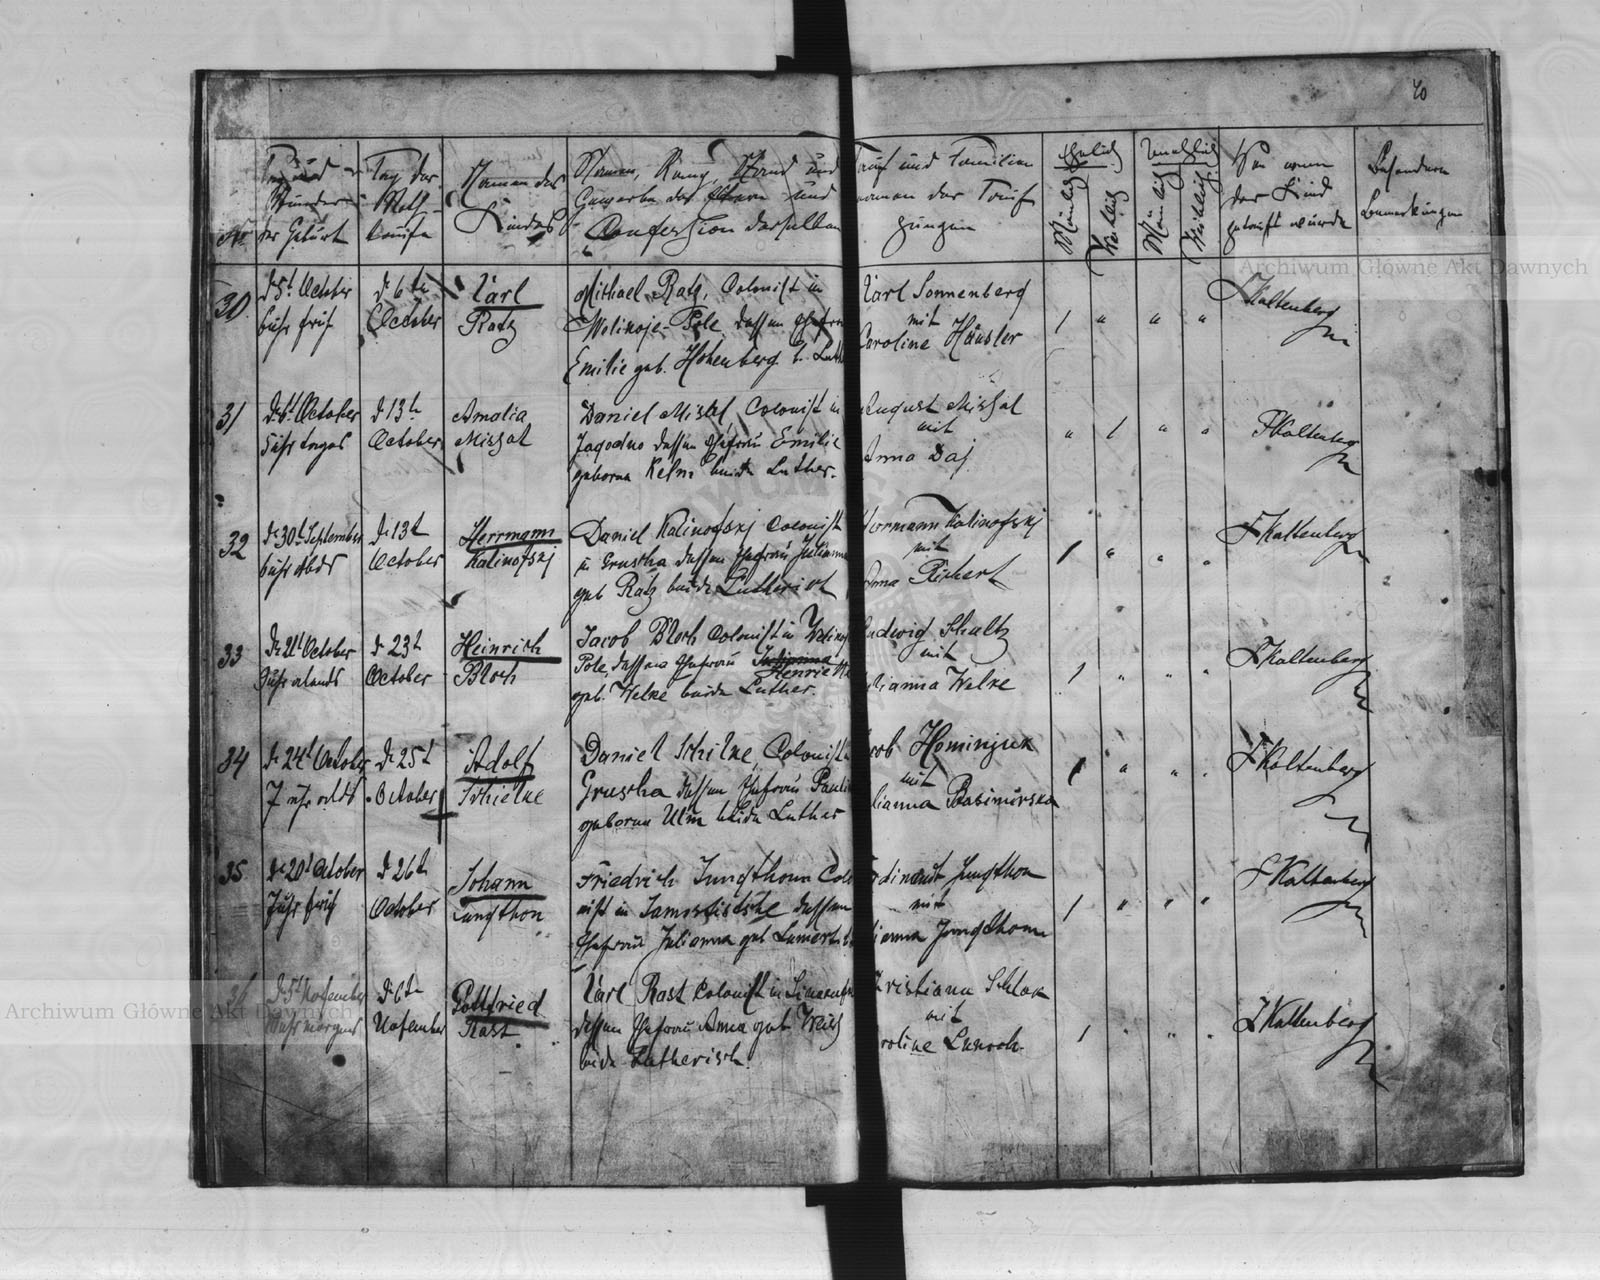 40
No
Tag und
Stunde
der Geburt
Tag der
Noth-
taufe
Namen des
Kindes
Namen, Rang, Stand und
Gewerbe der Eltern und
Confession derselben
Tauf und Familien
namen der Tauf
zeugen
Ehelich
Unehelich
Mänlich
Weiblich
Mänlich
Weiblich
Von wem
das Kind
getauft wurde
Besondere
Bemerkungen
30
D 5t October
6 uhr früh
D 6te
October
Karl
Ratz
Michael Ratz, Colonist in
Wolinoje-Pole dessen Ehefrau
Emilie geb. Hohenberg b. Luth
Karl Sonnenberg
mit
Caroline Häusler
1 " " "
F Kaltenberg
31
D 6t October
D 13te
October
Amalia
Missal
Daniel Missal Colonist in
Jagodno dessen Ehefrau Emilie
geborne Kelm beide Luther.
August Missal
mit
Anna Daj
" 1 " "
F Kaltenberg
32
D 30t September
6 uhr Abds
D 13t
October
Herrmann
Kalinofskj
Daniel Kalinofskj Colonist
in Gruscha dessen Ehefrau Julianna
geb Ratz beide Lutherisch
Herrmann Kalinofskj
mit
Anna Richert
1 " " "
F Kaltenberg
33
D 21t October
9 uhr abends
D 23t
October
Heinrich
Bloch
Jacob Bloch Colonist in Wolinoj
Pole, dessen Ehefrau Julianna
Henriette
geb. Welke beide Luther.
Ludwig Schultz
mit
Julianna Welke
1 " " "
F Kaltenberg
34
D 24t October
7 uhr abds
D 25t
October
Adolf
Schielke
Daniel Schilke, Colonist
Gruscha dessen Ehefrau Pauline
geborne Ulm beide Luther
Jacob Hominjuk
mit
Julianna Kasimirska
1 " " "
F Kaltenberg
35
D 20t October
7 uhr früh
D 26t
October
Johann
Jungthon
Friedrich Jungthon Colo
nist in dessen
Ehefrau Julianna geb Lamert
Ferdinand Jungthon
mit
Jungthon
1 " " "
F Kaltenberg
36
D 5t November
uhr morgens
D 6te
November
Gottfried
Rast
Karl Rast Colonist in
dessen Ehefrau Anna geb Weiss
beide Lutherisch
Christiana Schlak
mit
Karoline
1 " " "
F Kaltenberg
Archiwum Główne Akt Dawnych
Archiwum Główne Akt Dawnych